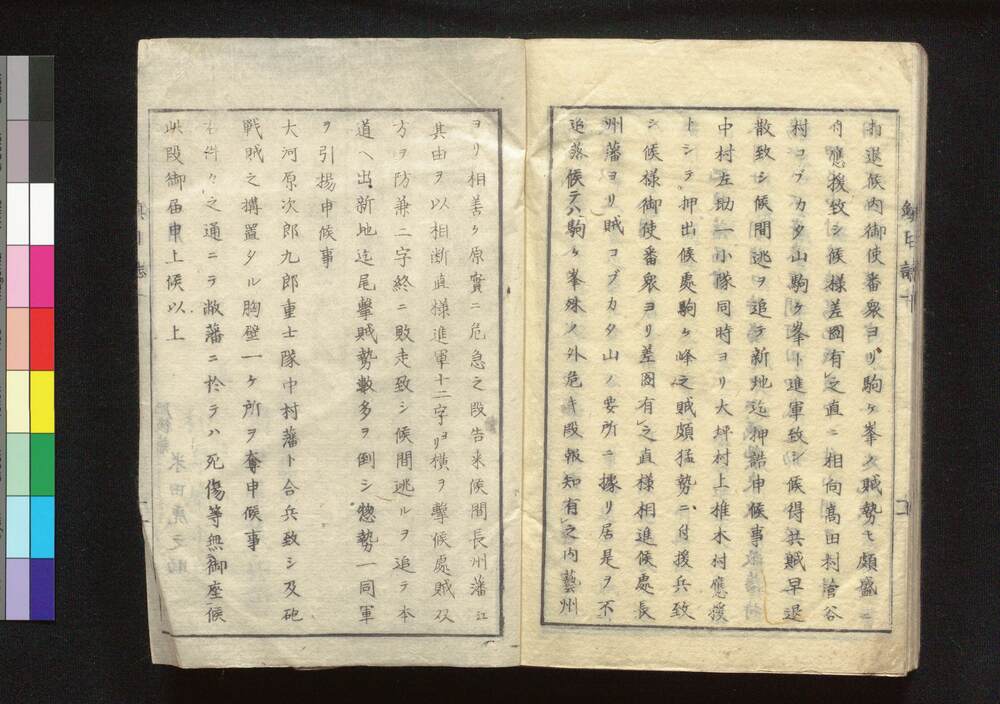 相進候内御使番衆ヨリ駒ケ峯ノ賊勢モ頗盛ニ
付應援致シ候様差圖有之直ニ相向高田村澮谷
村コブカタ山駒ケ峯ト進軍致シ候得共賊早退
散致シ候間逃ヲ追テ新地迄押詰申候事
中村左助一小隊同時ヨリ大坪村上椎木村應援
トシテ押出候處駒ケ峰之賊頗猛勢ニ付援兵致
シ候様御使番衆ヨリ差圖有之直様相進候處長
州藩ヨリ賊コブカタ山ノ要所ニ據リ居是ヲ不
追落候テハ駒ケ峯殊ノ外危キ段報知有之内藝州
ヨリ相善ケ原實ニ危急之段告来候間長州藩江
其由ヲ以相断直様進軍十二字ヨリ横ヲ擊候處賊双
方ヲ防兼二字終ニ敗走致シ候間逃ルヲ追テ本
道ヘ出新地迄尾擊賊勢數多ヲ倒シ惣勢一同軍
ヲ引揚申候事
大河原次郎九郎重士隊中村藩ト合兵致シ及砲
戦賊之搆置タル胸壁一ケ所ヲ奪申候事
右件々之通ニテ敝藩ニ於テハ死傷等無御座候
此段御届申上候以上